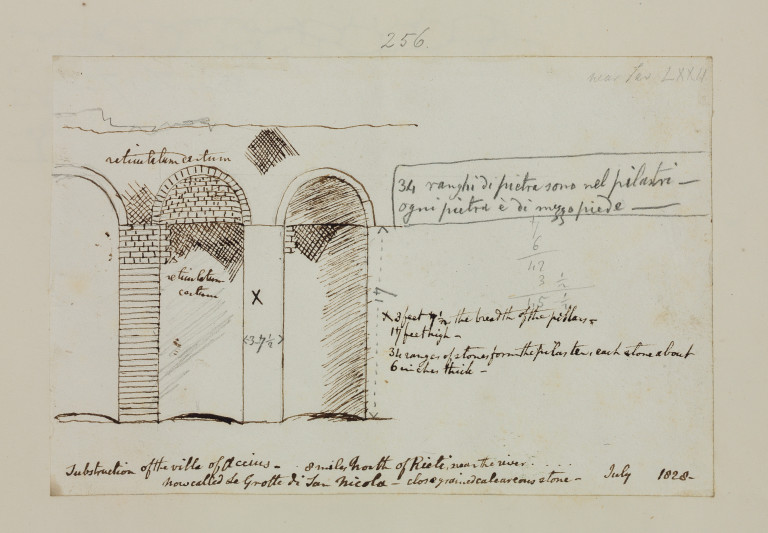 256.
near LXXII
reticulatum certum
34 ranghi di pietra sono nel pilastri —
ogni pietra è di mezzo piede —
6
42
3 ½
45 ½
reticulatum
certum
X
3-7½
17
X 3 feet 7½ the breadth of the pillars -
17 feet high -
34 ranges of stones form the pilasters, each stone about
6 inches thick -
Substruction of the villa of Accius - 8 miles North of Rieti, near the river . . . .
now called Le Grotte di San Nicola - close grained calcareous stone - July 1828 -